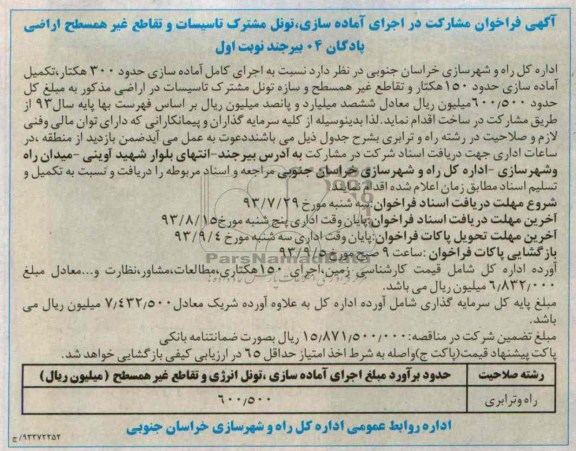 آگهی فراخوان مشارکت در اجرای آماده سازی،تونل مشترک تاسیسات و تقاطع غیر همسطح اراضی
پادگان ۰۴ بیرجند نوبت اول
اداره کل راه و شهرسازی خراسان جنوبی در نظر دارد نسبت به اجرای کامل آماده سازی حدود ۳۰۰ هکتار،تکمیل
آماده سازی حدود ۱۵۰هکتار و تقاطع غیر همسطح و سازه تونل مشترک تاسیسات در اراضی مذکور به مبلغ کل
حدود ۶۰۰/۵۰۰میلیون ریال معادل ششصد میلیارد و پانصد میلیون ریال بر اساس فهرست بها پایه سال۹۳ از
طریق مشارکت در ساخت اقدام نماید.لذا بدینوسیله از کلیه سرمایه گذاران و پیمانکارانی که دارای توان مالی وفنی
لازم و صلاحیت در رشته راه و ترابری بشرح جدول ذیل می باشنددعوت به عمل می آیدضمن بازدید از منطقه ،در
ساعات اداری جهت دریافت اسناد شرکت در مشارکت به آدرس بیرجند-انتهای بلوار شهید آوینی -میدان راه
وشهرسازی -اداره کل راه و شهرسازی خراسان جنوبی مراجعه و اسناد مربوطه را دریافت و نسبت به تکمیل و
تسلیم اسناد مطابق زمان اعلام شده اقدام نمایند.
شروع مهلت دریافت اسناد فراخوان:سه شنبه مورخ ۹۳/۷/۲۹
آخرین مهلت دریافت اسناد فراخوان:پایان وقت اداری پنج شنبه مورخ۹۳/۸/۱۵
آخرین مهلت تحویل پاکات فراخوان:پایان وقت اداری سه شنبه مورخ ۹۳/۹/۴
بازگشایی پاکات فراخوان :ساعت ۹ صبح مورخ ۹۳/۹/۵
آورده اداره کل شامل قیمت کارشناسی زمین،اجرای ۱۵۰هکتاری،مطالعات،مشاور،نظارت و...معادل مبلغ
۶/۸۳۲/۰۰۰میلیون ریال می باشد.
مبلغ پایه کل سرمایه گذاری شامل آورده اداره کل به علاوه آورده شریک معادل۷/۴۳۲/۵۰۰ میلیون ریال می
باشد.
مبلغ تضمین شرکت در مناقصه:۱۵/۸۷۱/۵۰۰/۰۰۰ ریال بصورت ضمانتنامه بانکی
پاکت پیشنهاد قیمت(پاکت ج)واصله به شرط اخذ امتیاز حداقل ۶۵ در ارزیابی کیفی بازگشایی خواهد شد.
رشته صلاحیت حدود برآورد مبلغ اجرای آماده سازی ،تونل انرژی و تقاطع غیر همسطح (میلیون ریال)
راه وترابری ۶۰۰/۵۰۰
اداره روابط عمومی اداره کل راه و شهرسازی خراسان جنوبی
۹۳۲۷۲۲۵۲/ج
ParsNamadData